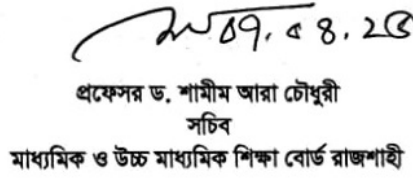 ০৭.০৪.২৫
প্রফেসর ড. শামীম আরা চৌধুরী
সচিব
মাধ্যমিক ও উচ্চ মাধ্যমিক শিক্ষা বোর্ড রাজশাহী